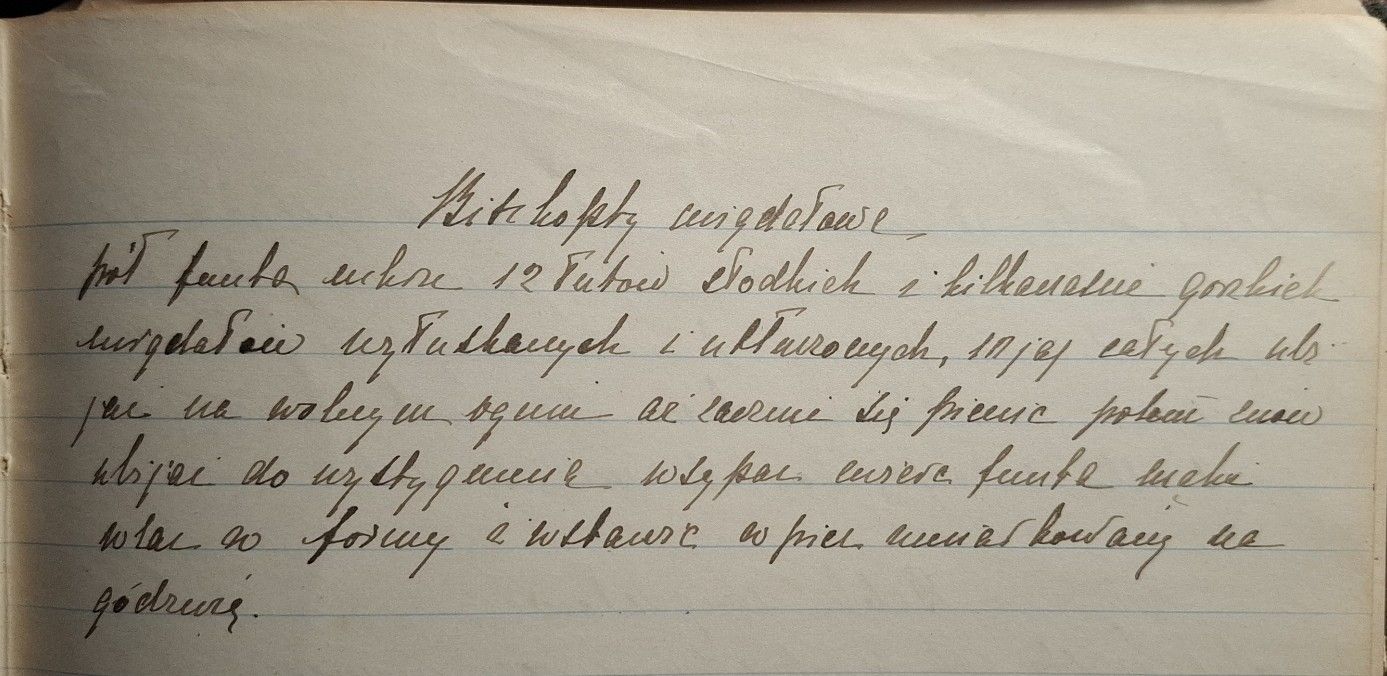 Biszkopty migdałowe
pół funta cukru 12 łutów słodkich i kilkanaście gorzkich
migdałów wyłuskanych i utłuczonych, jaj całych ubi
jać na wolnym ogniu aż zacznie się pienić potem znów
ubijać do wystygnienia wsypać ćwierć funta mąki
wlać w formy i wstawić w piec na
godzinę.